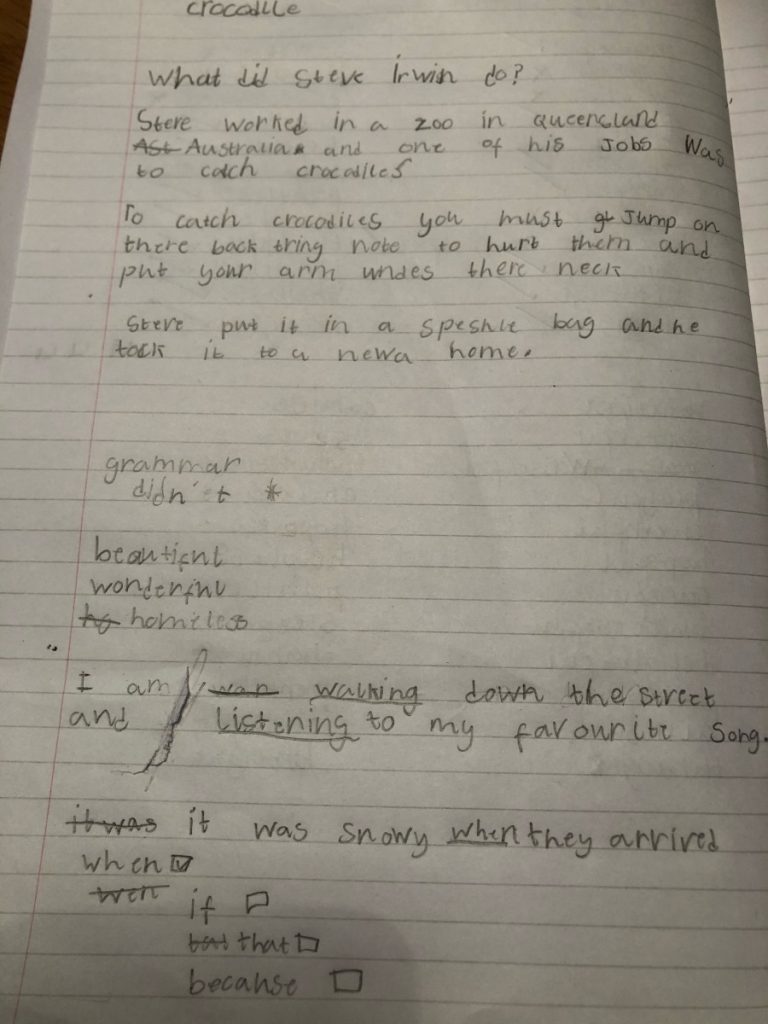 crocodile
What did Steve Irwin do?
Steve worked in a zoo in Queensland
Ast Australia and one of his Jobs Was
to catch crocodiles
To catch crocodiles you must gt Jump on
there back tring note to hurt them and
put your arm undes there neck
Steve put it in a speshle bag and he
tock it to a newa home.
grammar
didn't *
beautiful
wonderful
ho homeless
I am wan walking down the street
and listening to my favourite song.
it was it was snowy when they arrived
when ☑
wen if ☐
bat that ☐
because ☐